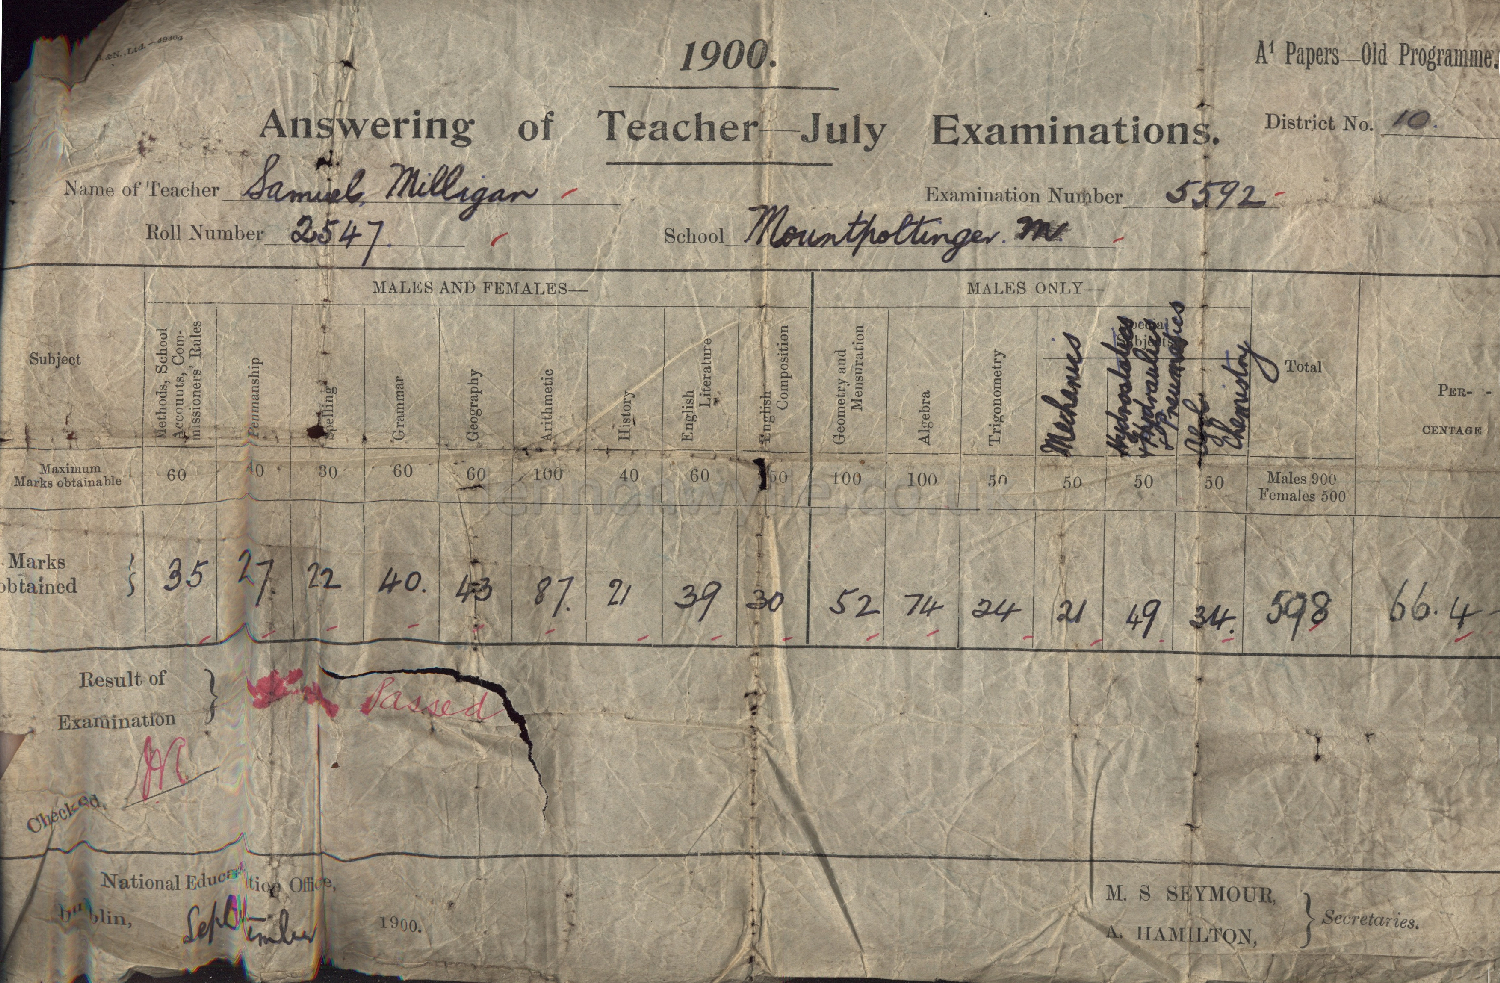 & N., Ltd.—
1900.
A¹ Papers—Old Programme.
Answering of Teacher—July Examinations.
District No. 10.
Name of Teacher Samuel Milligan
Examination Number 5592
Roll Number 2547.
School Mountpottinger. m
MALES AND FEMALES—
MALES ONLY—
Subject
Methods, School Accounts, Com- missioners' Rules
Penmanship
Spelling
Grammar
Geography
Arithmetic
History
English Literature
English Composition
Geometry and Mensuration
Algebra
Trigonometry
Special Subjects
Mechanics
Hydrostatics Hydraulics & Pneumatics
Chemistry
Total
PER-CENTAGE
Maximum Marks obtainable 60 0 30 60 60 100 40 60 60 100 100 50 50 50 50 Males 900 Females 500
Marks obtained 35 27. 22 40. 43 87. 21 39 30 52 74 24 21 49 34. 598 66.4
Result of Examination Passed
Checked,
National Education Office,
Dublin, September 1900.
M. S SEYMOUR,
A. HAMILTON,
Secretaries.